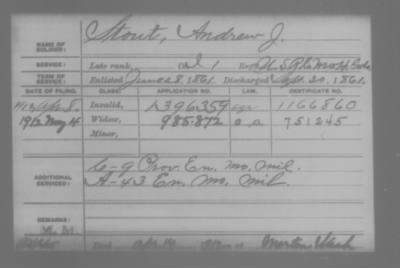 NAME OF SOLDIER: Stout, Andrew J.
SERVICE: Late rank, Co. I, 1 Reg't U.S. R. Mo. H. Gds
TERM OF SERVICE: Enlisted June 8, 1861. Discharged Sept. 20, 1861.
DATE OF FILING. CLASS. APPLICATION NO. LAW. CERTIFICATE NO.
Invalid, 1396359 1166860
1912 May 4 Widow, 985.872 751245
Minor,
ADDITIONAL SERVICES: C-9 Prov. En. Mo. Mil.
A-43 En. Mo. Mil.
REMARKS:
Died Apr 14 at Wash